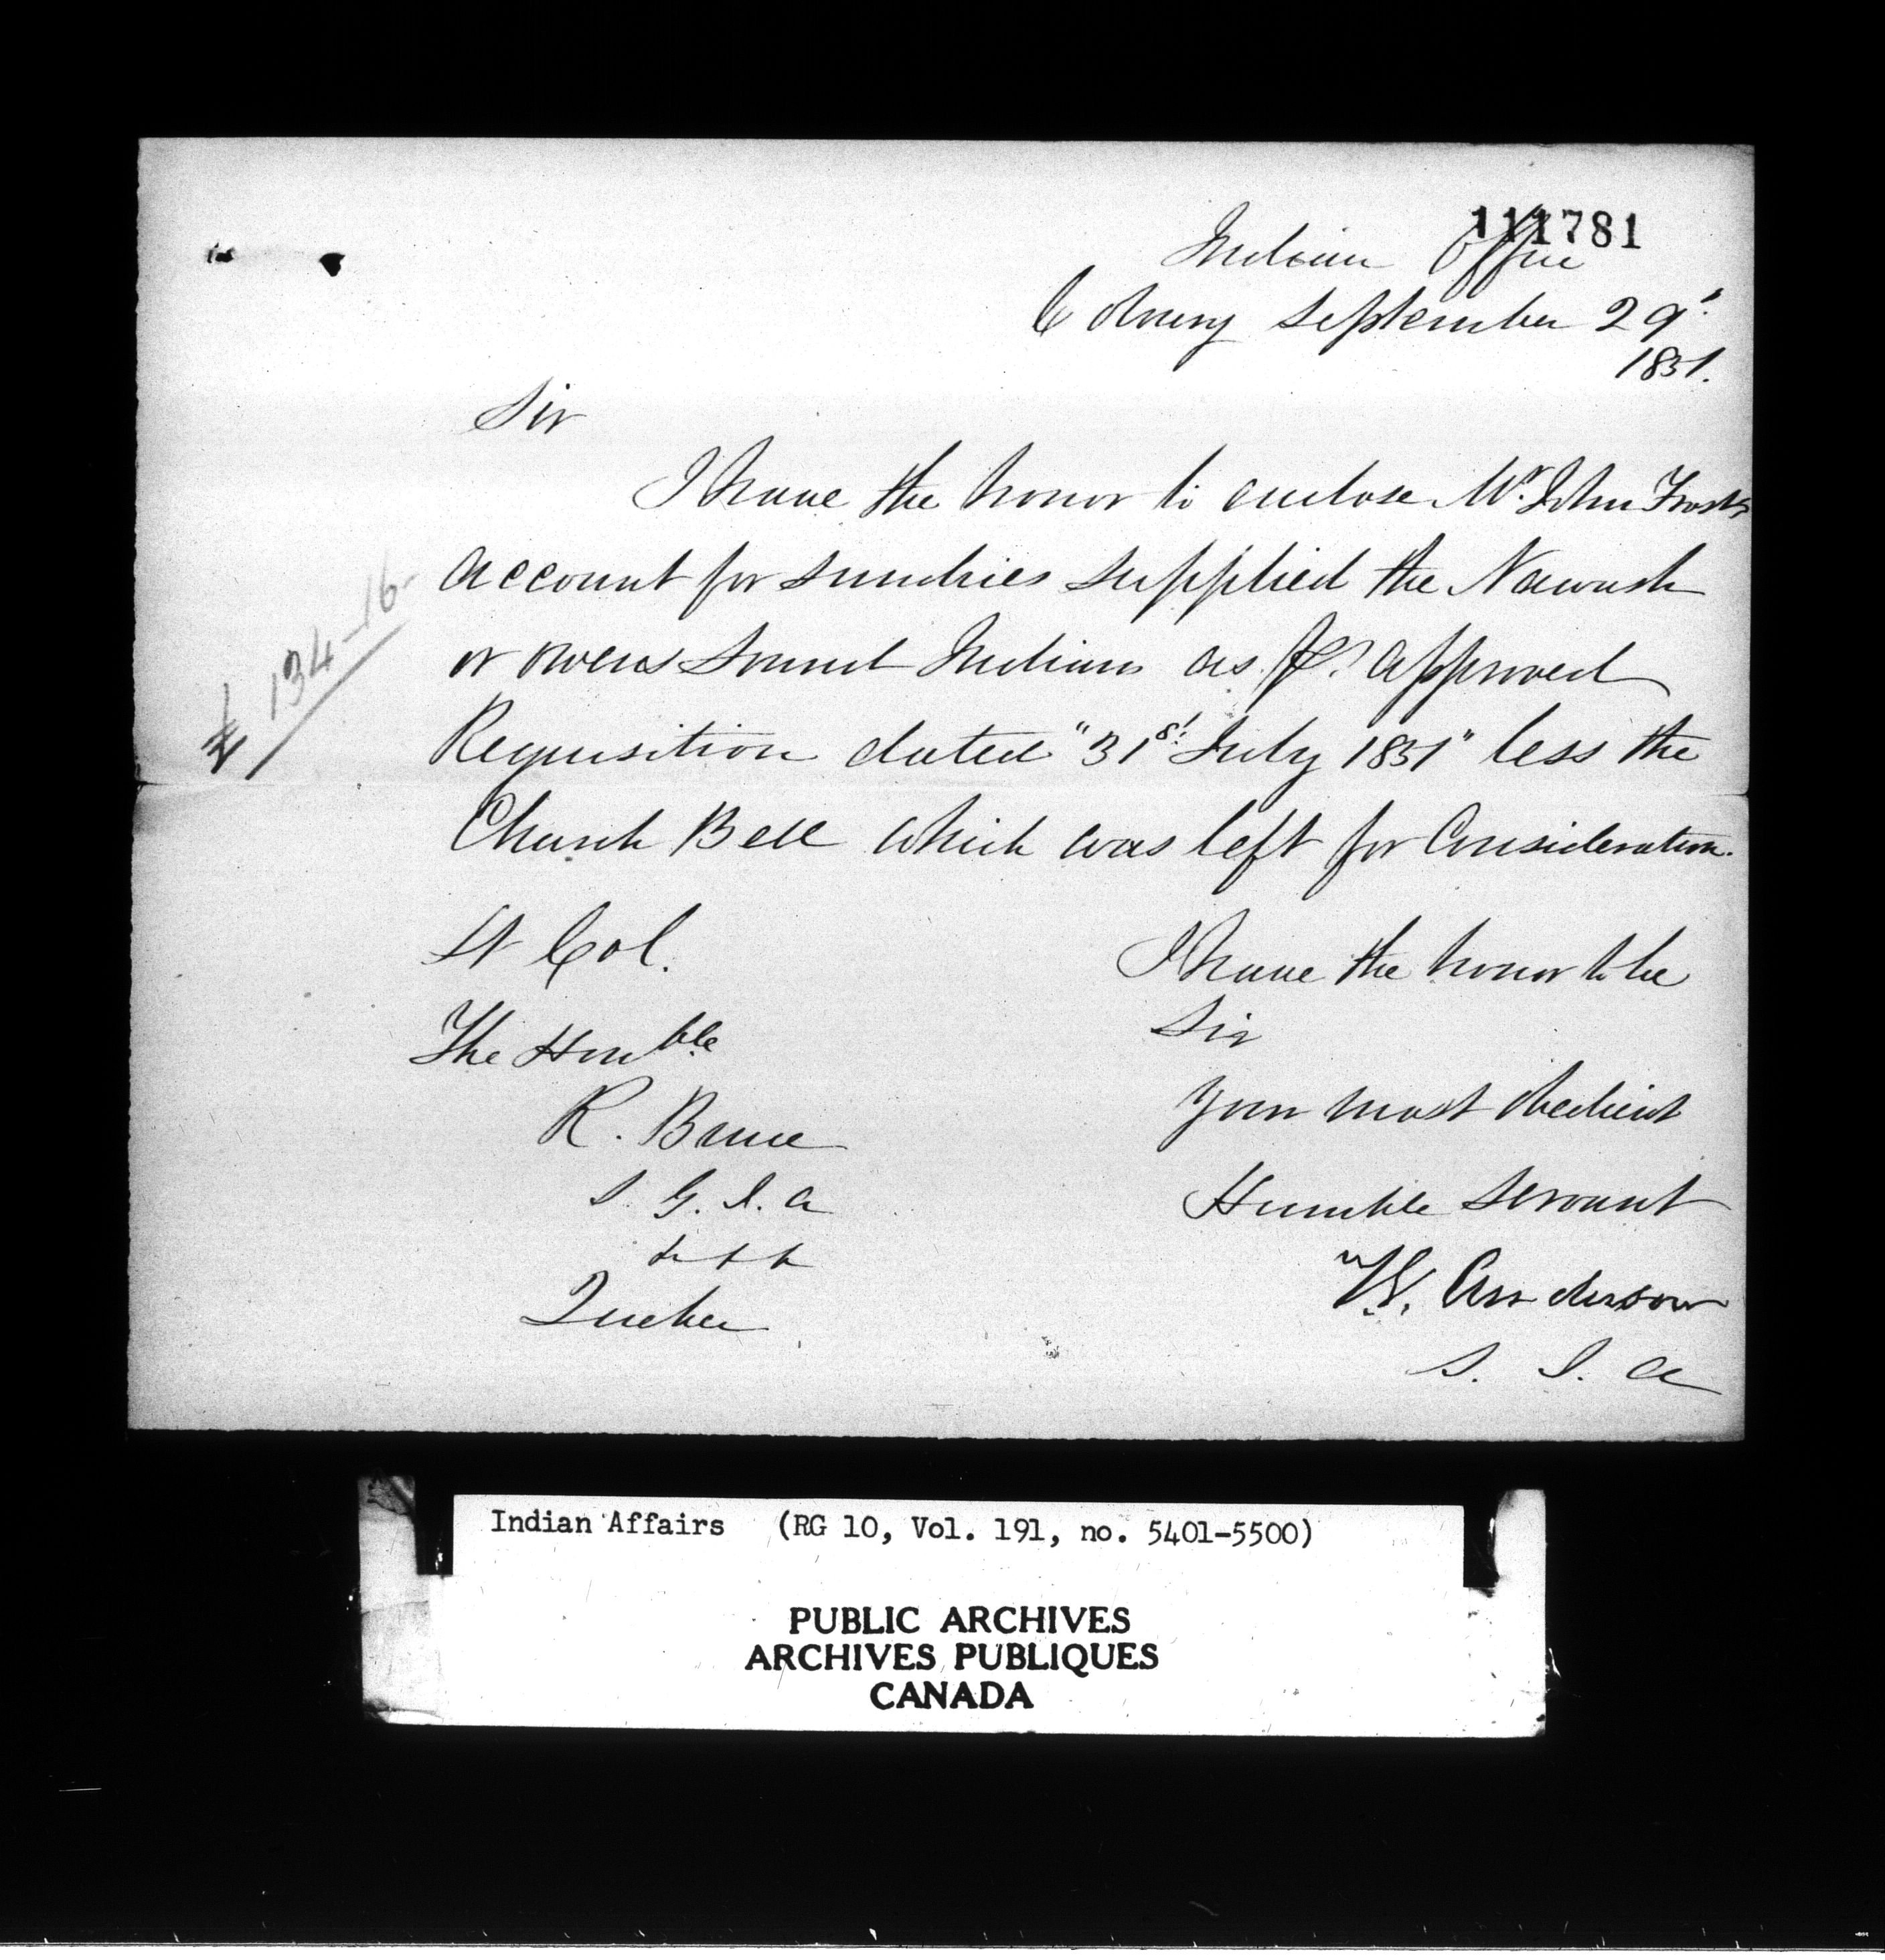 111781
Indian Office
Cobourg September 29th
1851.
Sir
I have the honor to enclose Mr. John Frosts
account for sundries supplied the Nawash
or owens Sound Indians as pr. approved
Requisition dated "31st July 1851" less the
Church Bell which was left for Consideration.
£ 134-16-
Lt Col.
The Honble
R. Bruce
S. G. I. A
& & &
Quebec
I have the honor to be
Sir
your most obedient
Humble servant
T. G. Anderson
S. I. A
Indian Affairs (RG 10, Vol. 191, no. 5401-5500)
PUBLIC ARCHIVES
ARCHIVES PUBLIQUES
CANADA